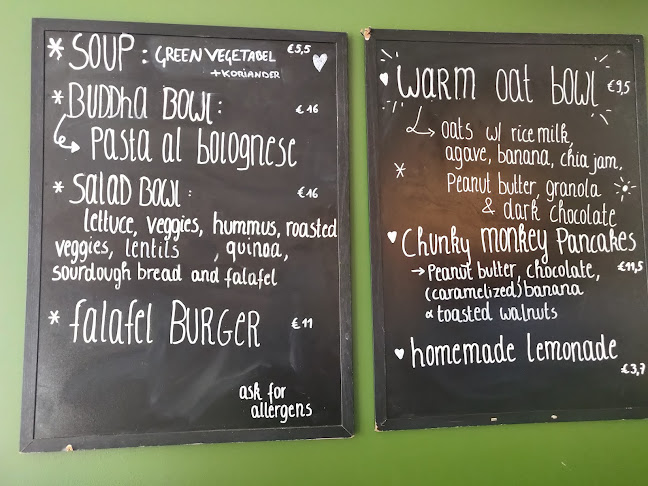 * SOUP: GREEN VEGETABEL €5,5
+ KORIANDER
* BUDDHA BOWL: €16
↳ Pasta al bolognese
* SALAD BOWL: €16
lettuce, veggies, hummus, roasted
veggies, lentils , quinoa,
sourdough bread and falafel
* falafel BURGER €11
ask for
allergens
♥ WARM oat bowl €9,5
↳ oats w/ rice milk,
agave, banana, chia jam,
* Peanut butter, granola
& dark chocolate
♥ Chunky Monkey Pancakes
→ Peanut butter, chocolate, €11,5
(caramelized) banana
& toasted walnuts
♥ homemade lemonade
€3,7